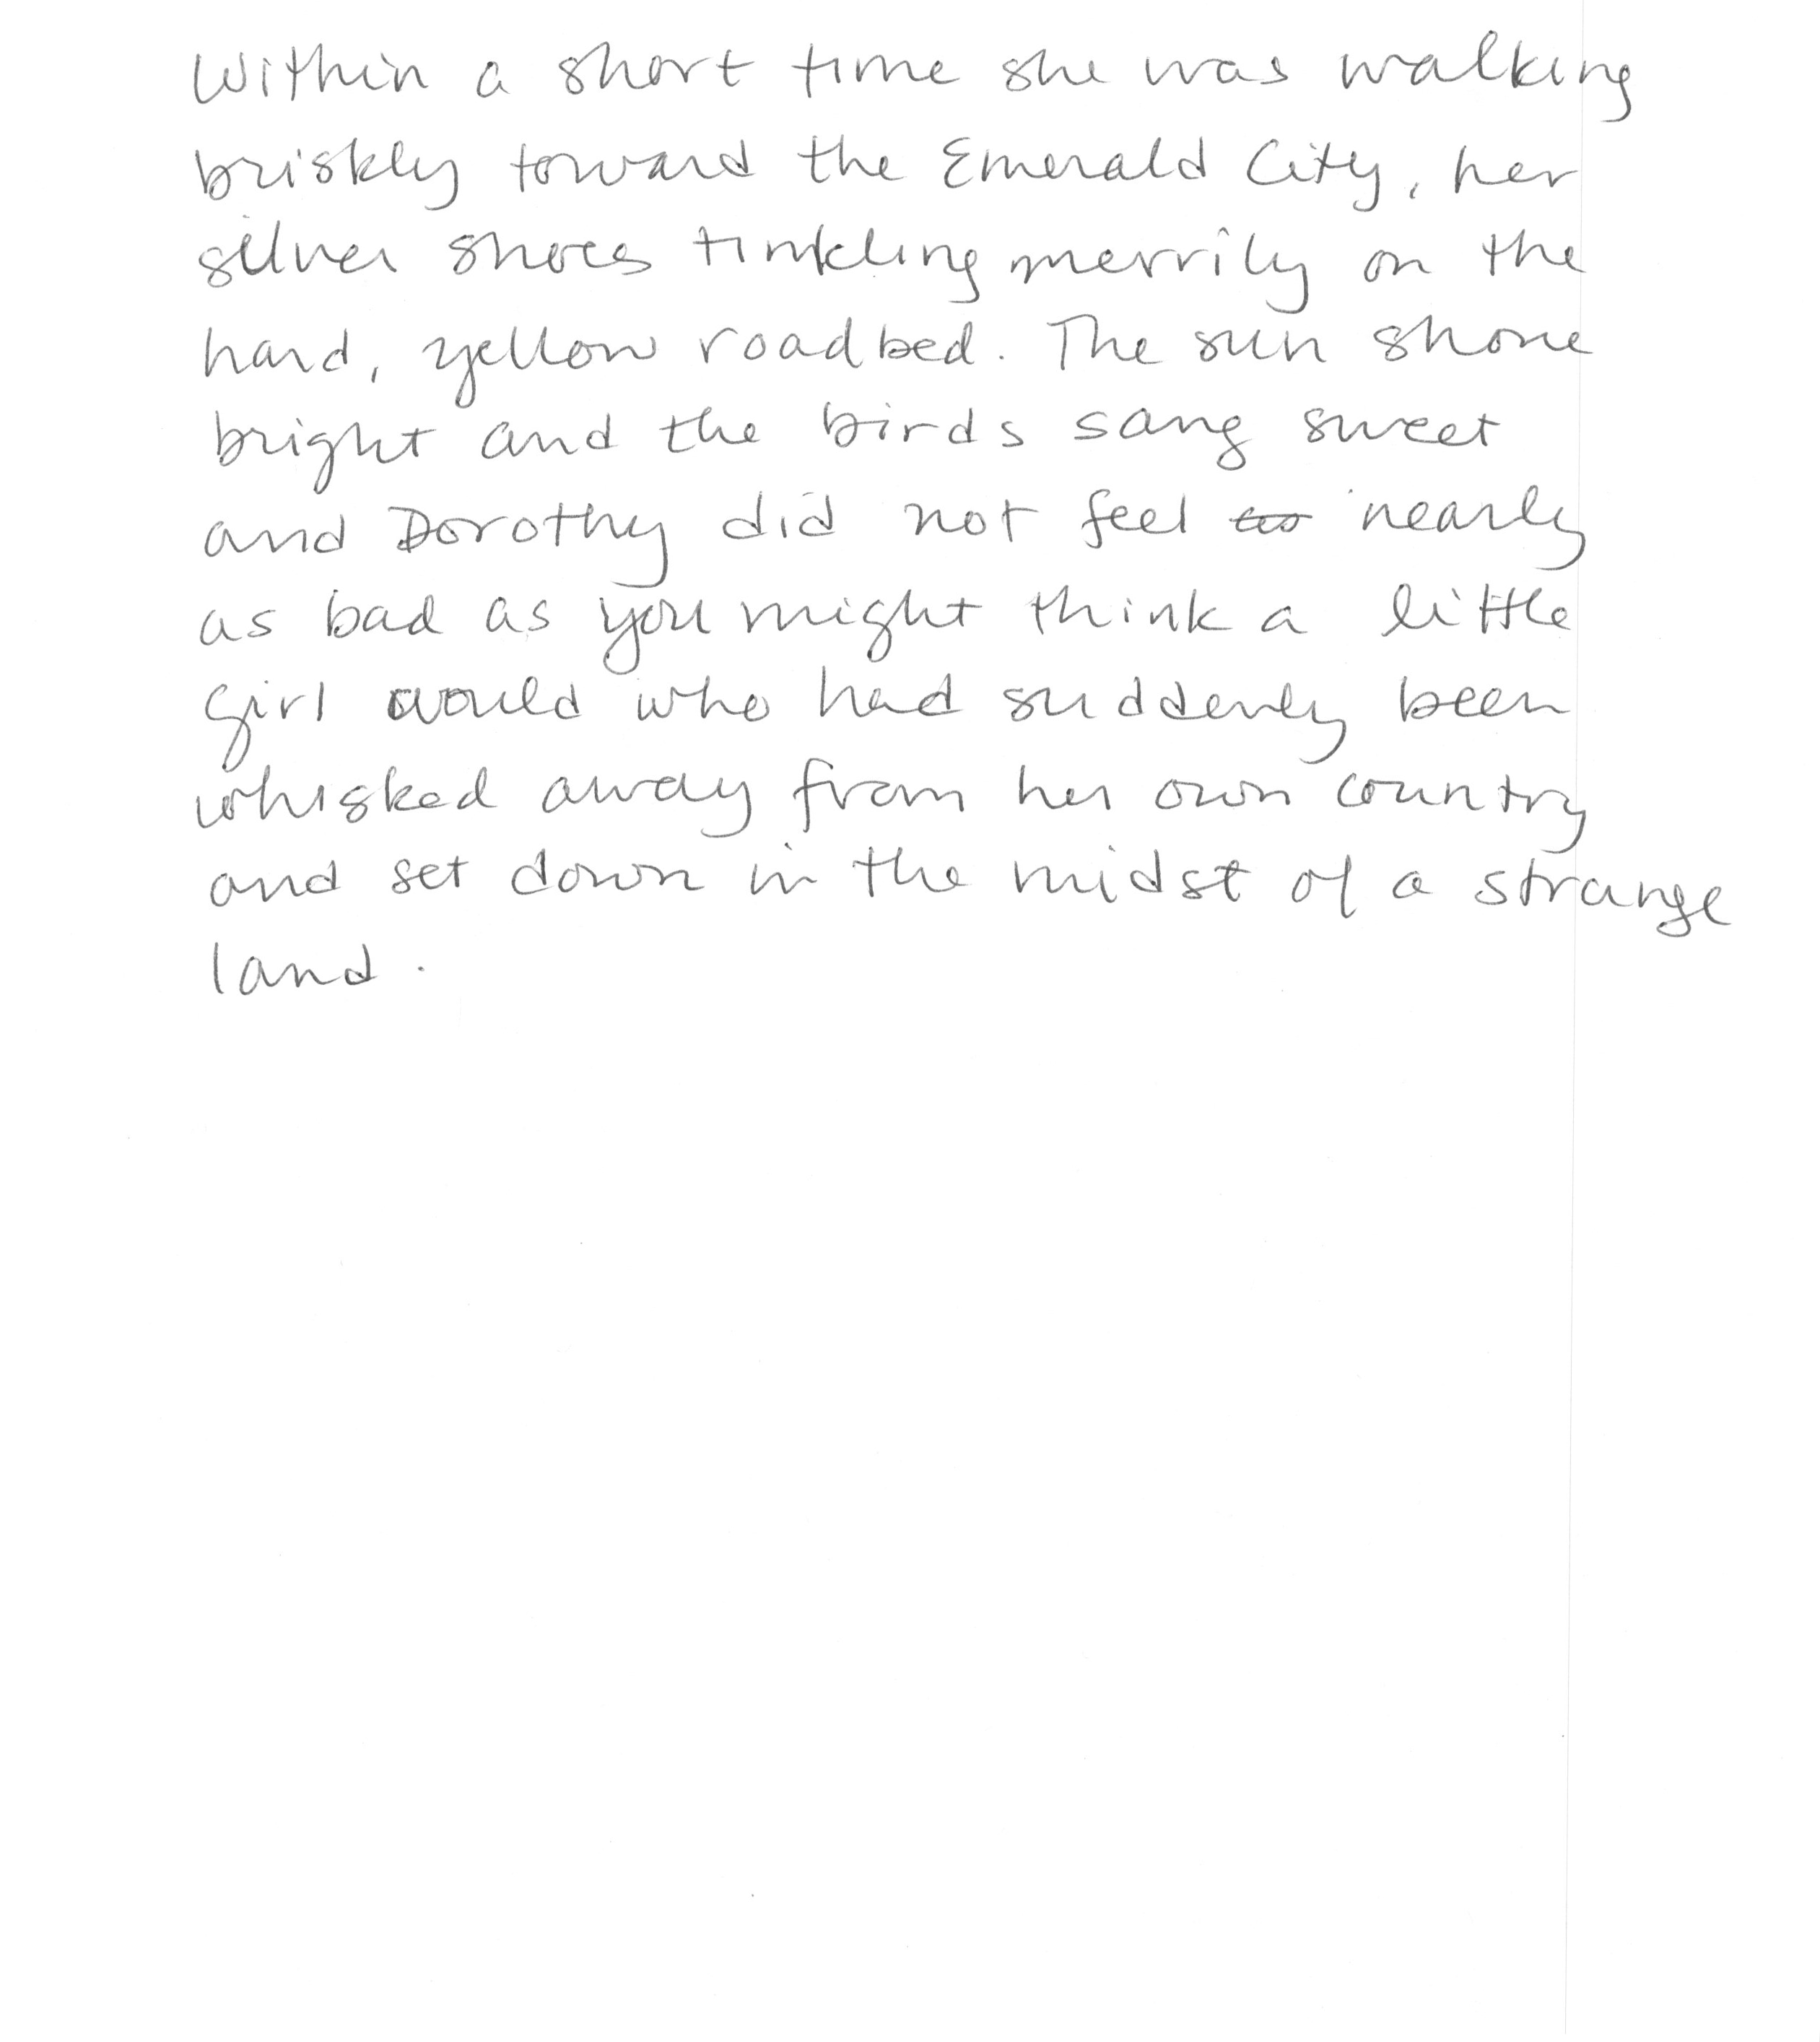 Within a short time she was walking
briskly toward the Emerald City, her
silver shoes tinkling merrily on the
hard, yellow roadbed. The sun shone
bright and the birds sang sweet
and Dorothy did not feel nearly
as bad as you might think a little
girl would who had suddenly been
whisked away from her own country
and set down in the midst of a strange
land.